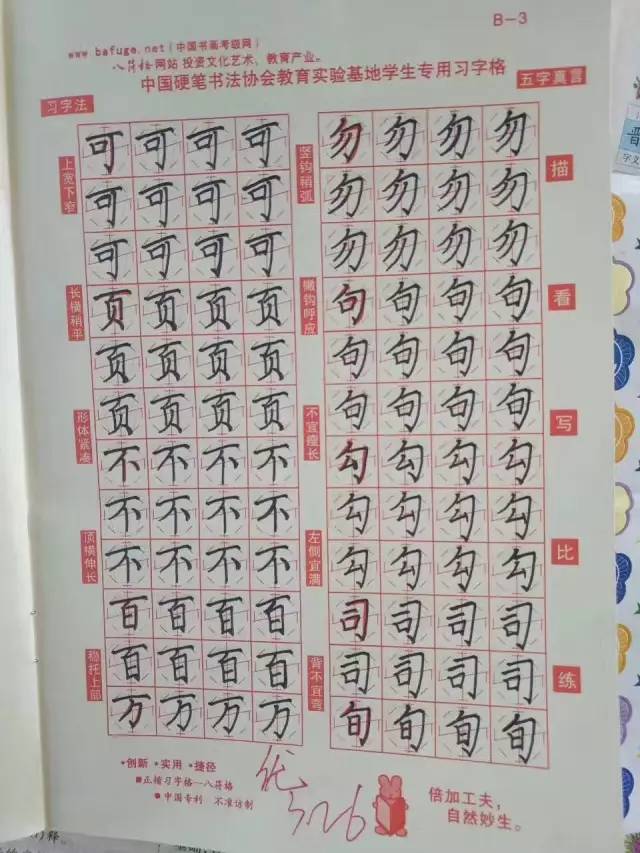 B-3
www.bafuge.net（中国书画考级网）
八荷格网站 投资文化艺术、教育产业。
中国硬笔书法协会教育实验基地学生专用习字格
五字真言
习字法
上宽下窄
长横稍平
形体紧凑
顶横伸长
稳托上部
可可可可
可可可可
可可可可
页页页页
页页页页
页页页页
不不不不
不不不不
不不不不
百百百百
百百百百
万万万万
竖钩稍弧
撇钩呼应
不宜瘦长
左侧宜满
背不宜弯
勿勿勿勿
勿勿勿勿
勿勿勿勿
句句句句
句句句句
句句句句
勾勾勾勾
勾勾勾勾
勾勾勾勾
司司司司
司司司司
旬旬旬旬
描
看
写
比
练
•创新 •实用 •捷径
■正楷习字格—八荷格
•中国专利 不准仿制
优
5.26
倍加工夫，
自然妙生。